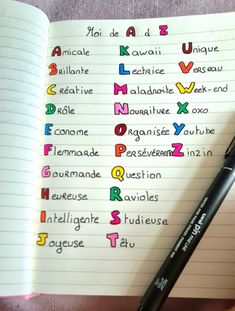 Moi de A à Z
Amicale
Brillante
Créative
Drôle
Econome
Flemmarde
Gourmande
Heureuse
Intelligente
Joyeuse
Kawaii
Lectrice
Maladroite
Nourriture
Organisée
Persévérante
Question
Ravioles
Studieuse
Têtu
Unique
Verseau
Week-end
Xoxo
Youtube
Zinzin
pin